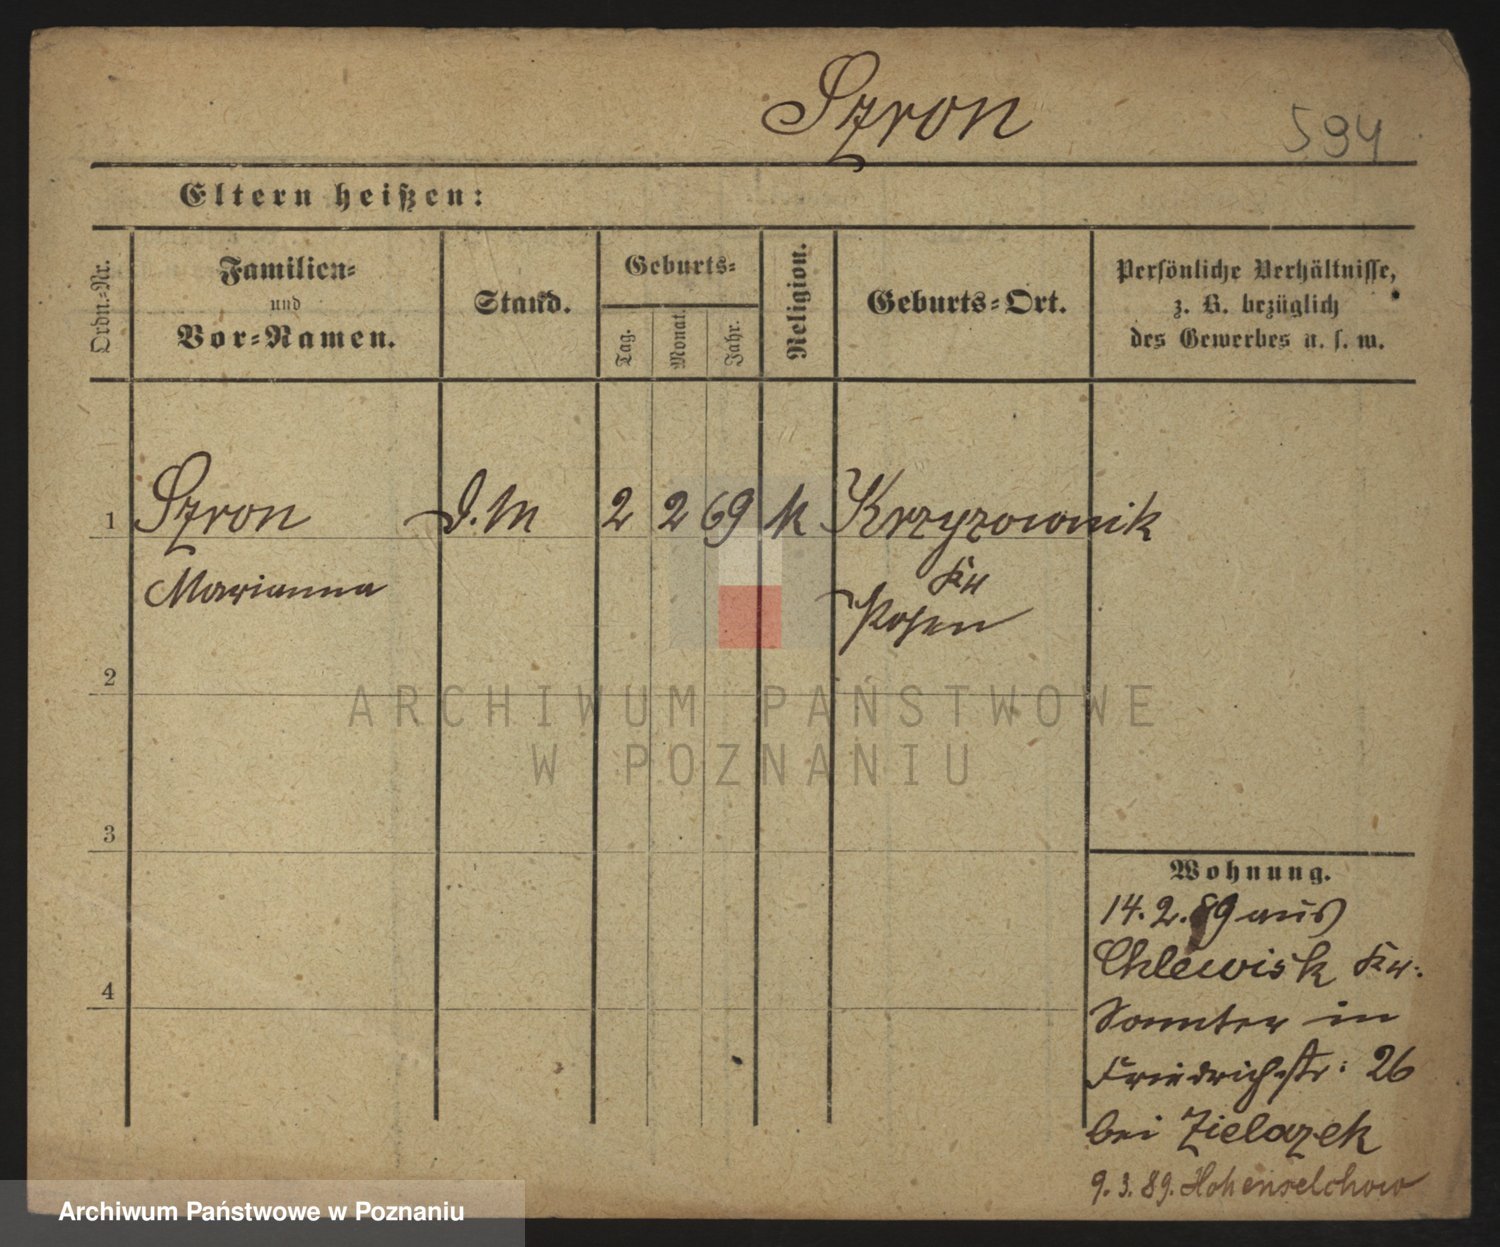 Szron
594
Eltern heißen:
Ordn.-Nr.
Familien-
und
Vor-Namen.
Stand.
Geburts-
Tag.
Monat.
Jahr.
Religion.
Geburts-Ort.
Persönliche Verhältnisse,
z. B. bezüglich
des Gewerbes u. s. w.
1 Szron D.M 2 2 69 k Krzyzownik
Marianna Kr
Posen
2
3
4
Wohnung.
14. 2. 89 aus
Chlewisk Kr:
Samter in
Friedrichstr: 26
bei Zielazek
9. 3. 89. Hohenselchow
ARCHIWUM PAŃSTWOWE
W POZNANIU
Archiwum Państwowe w Poznaniu